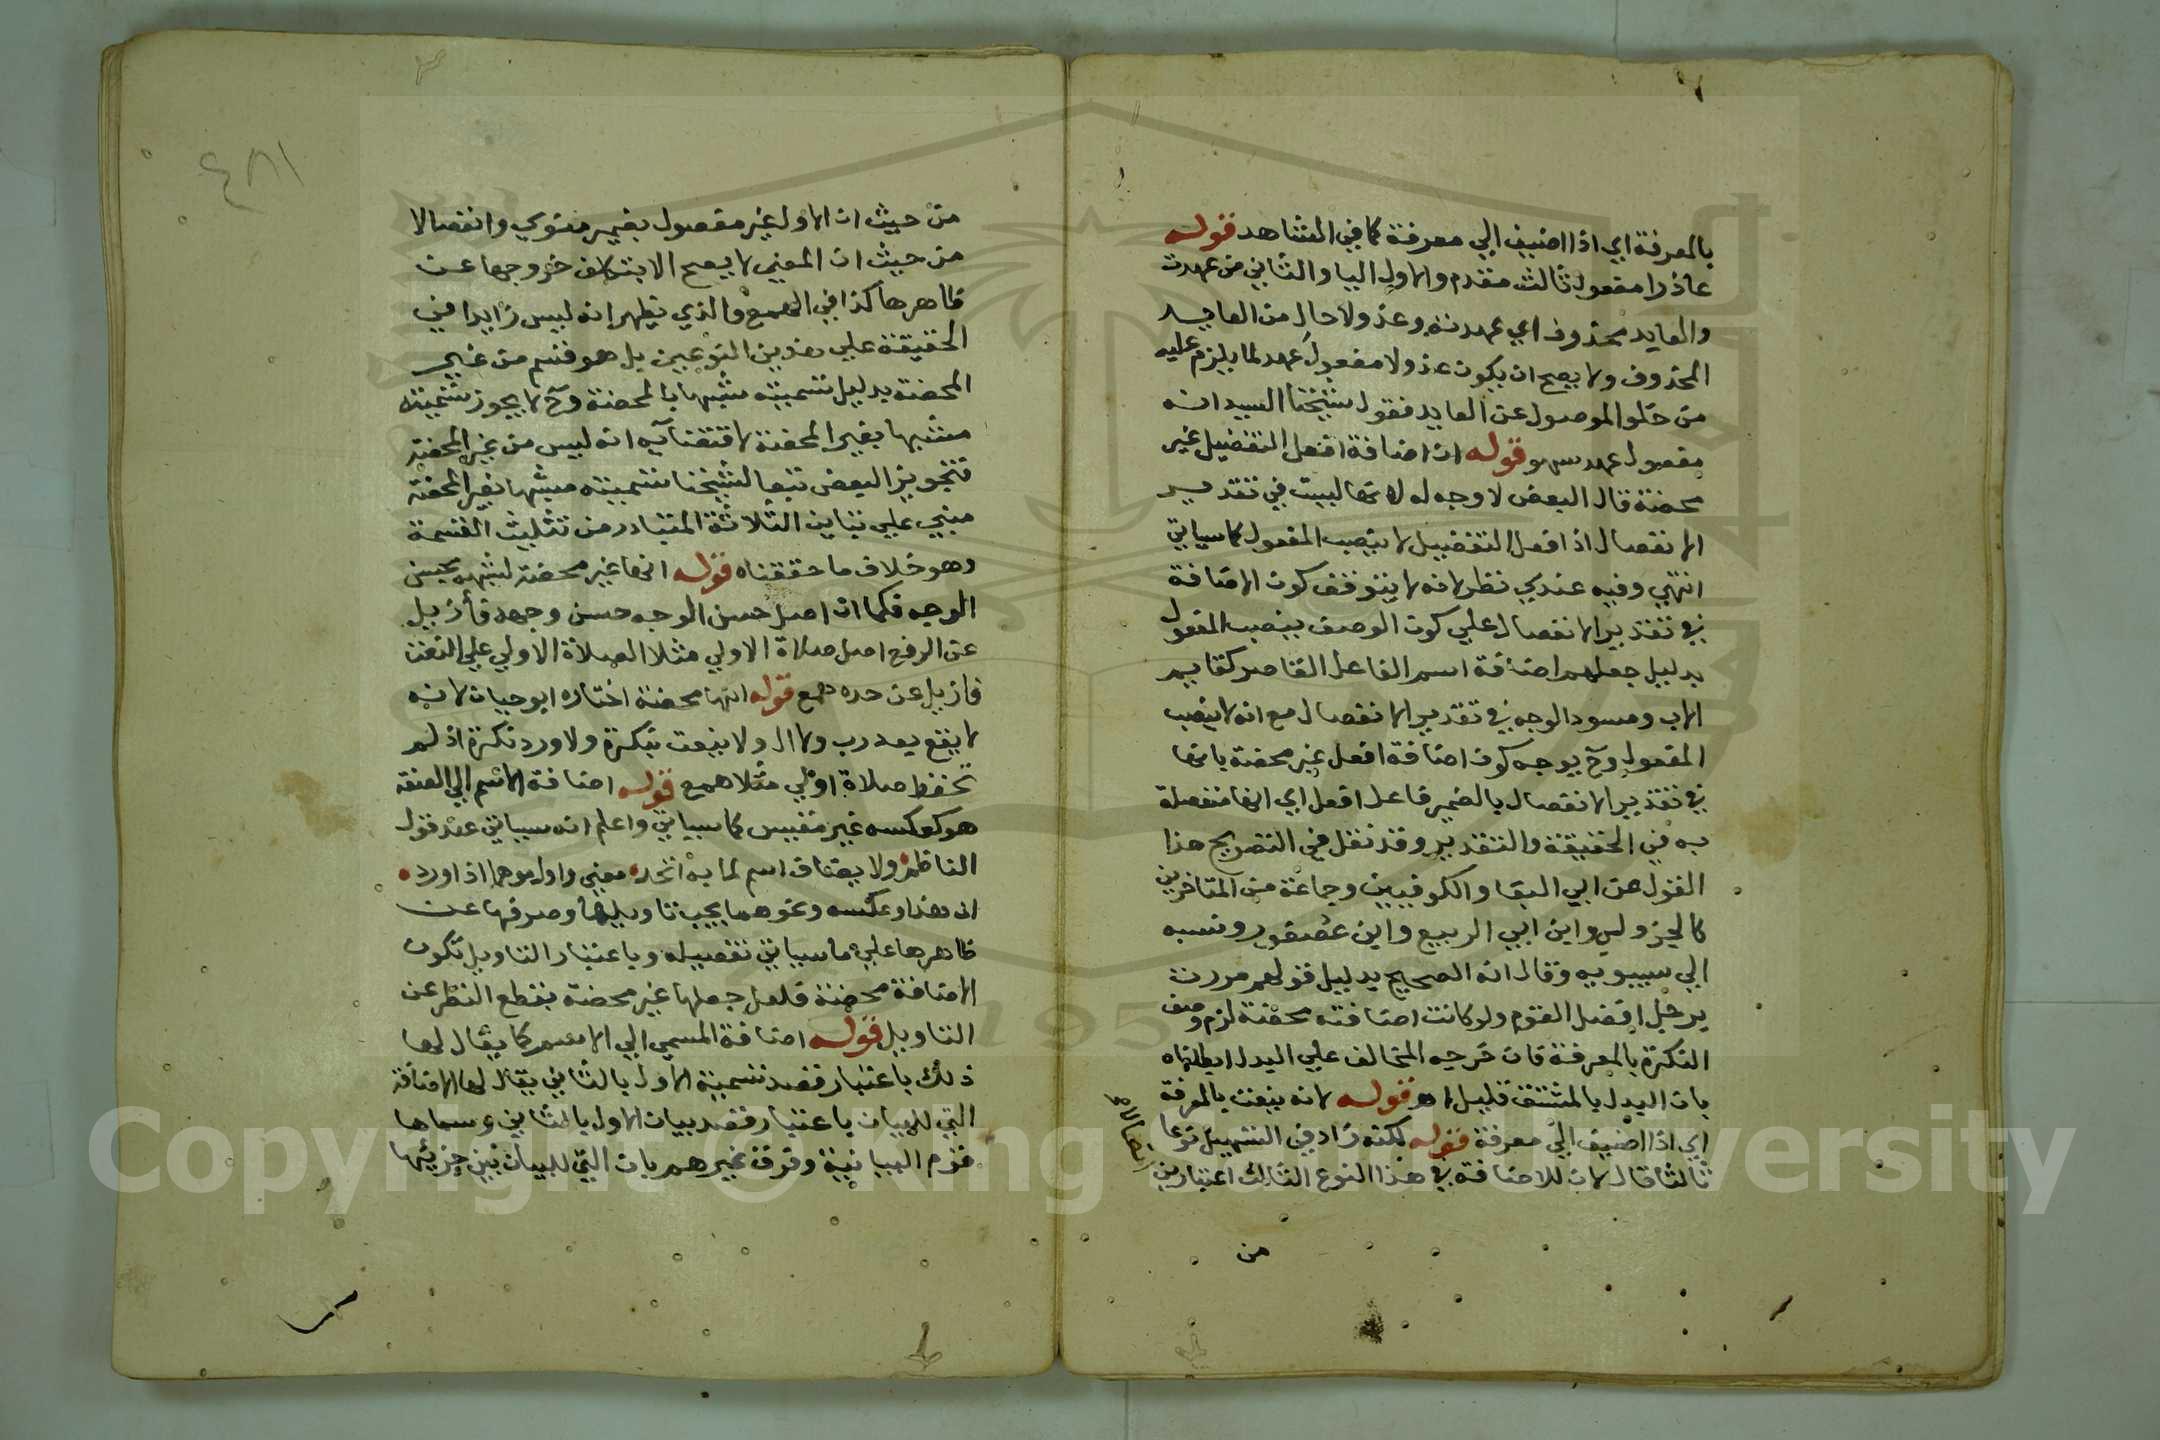 بالمعرفة اي اذا اضيف الي معرفة كما في الشاهد قوله
عاذرا مفعول ثالث مقدم والاول اليا والثاني من عهدت
والعايد محذوف اي عهدتنه وعذولا حال من العايد
المحذوف ولا يصح ان يكون عذولا مفعول عهد لما يلزم عليه
من خلو الموصول عن العايد فقول شيخنا السيد انه
مفعول عهد سهو قوله ان اضافة افعل التفضيل غير
محضة قال البعض لا وجه له لانها ليست في تقدير
الانفصال اذ افعل التفضيل لا ينصب المفعول كما سياتي
انتهي وفيه عندي نظر لانه لا يتوقف كون الاضافة
في تقدير الانفصال علي كون الوصف ينصب المفعول
بدليل جعلهم اضافة اسم الفاعل القاصر كقايم
الاب ومسود الوجه في تقدير الانفصال مع انه لا ينصب
المفعول وح يوجه كون اضافة افعل غير محضة بانها
في تقدير الانفصال بالضمير فاعل افعل اي انها منفصلة
به في الحقيقة والتقدير وقد نقل في التصريح هذا
القول عن ابي البقا والكوفيين وجماعة من المتاخرين
كالجزولي وابن ابي الربيع وابن عصفور ونسبه
الي سيبويه وقال انه الصحيح بدليل قولهم مررت
برجل افضل القوم ولو كانت اضافته محضة لزم وصف
النكرة بالمعرفة فان خرجه المخالف علي البدل ابطلناه
بان البدل بالمشتق قليل اهـ قوله لانه ينعت بالمعرفة
اي اذا اضيف الي معرفة قوله لكنه زاد في التسهيل نوعا
ثالثا قال لان للاضافة في هذا النوع الثالث اعتبارين
اتصالا
من
٤٨١
من حيث ان الاول غير مفصول بضمير منوي وانفصالا
من حيث ان المعني لا يصح الا بتكلف خروجها عن
ظاهرها كذا في الهمع والذي يظهر انه ليس زايدا في
الحقيقة علي هذين النوعين بل هو قسم من غير
المحضة بدليل تسميته شبيها بالمحضة وح لا يجوز تسميته
مشبها بغير المحضة لاقتضائه انه ليس من غير المحضة
فتجويز البعض تبعا لشيخنا تسميته مشبها بغير المحضة
مبني علي تباين الثلاثة المتبادر من تثليث القسمة
وهو خلاف ما حققناه قوله انها غير محضة لشبهه بحسن
الوجه فكما ان اصل حسن الوجه حسن وجهه فأزيل
عن الرفع اصل صلاة الاولي مثلا الصلاة الاولي علي النعت
فازيل عن حده همع قوله انها محضة اختاره ابو حيان لانه
لا يقع بعد رب ولا ال ولا ينعت بنكرة ولا ورد نكرة اذ لم
تحفظ صلاة اولي مثلا همع قوله اضافة الاسم الي الصفة
هو كعكسه غير مقيس كما سياتي واعلم انه سياتي عند قول
الناظم ولا يضاف اسم لما به اتحد معني واول موهما اذا ورد
ان هذا وعكسه ونحوهما يجب تاويلها وصرفها عن
ظاهرها علي ما سياتي تفصيله وباعتبار التاويل تكون
الاضافة محضة فلعل جعلها غير محضة بقطع النظر عن
التاويل قوله اضافة المسمي الي الاسم كما يقال لها
ذلك باعتبار قصد تسمية الاول بالثاني يقال لها الاضافة
التي للبيان باعتبار قصد بيان الاول بالثاني وسماها
قوم البيانية وفرق غيرهم بان التي للبيان بين جزئيها
Copyright © King Saud University
195